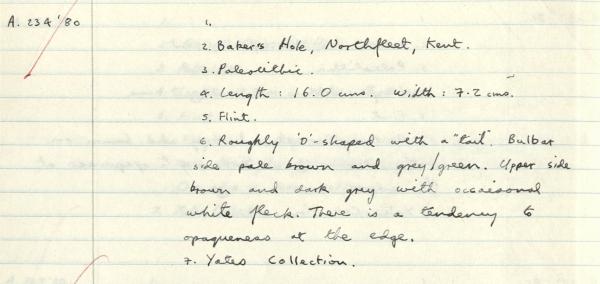 A. 234'80
1.
2. Baker's Hole, Northfleet, Kent.
3. Paleolithic.
4. Length : 16.0 cms. Width : 7.2 cms.
5. Flint.
6. Roughly 'D'-shaped with a "tail". Bulbar
side pale brown and grey/green. Upper side
brown and dark grey with occaisonal
white fleck. There is a tendency to
opaqueness at the edge.
7. Yates Collection.